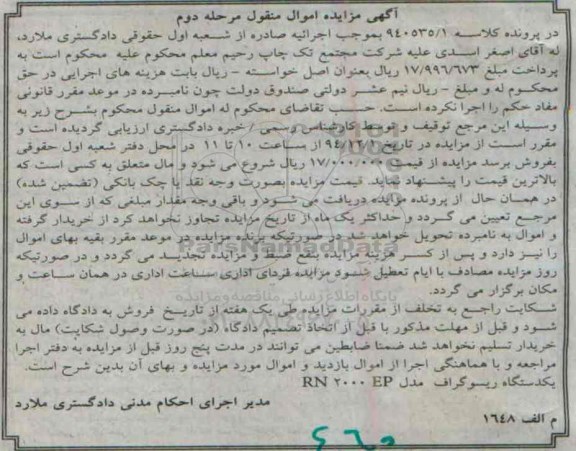 آگهی مزایده اموال منقول مرحله دوم
در پرونده کلاسه ۹۴۰۵۳۵/۱ بموجب اجرائیه صادره از شعبه اول حقوقی دادگستری ملارد،
له آقای اصغر اسدی علیه شرکت مجتمع تک چاپ رحیم معلم محکوم علیه محکوم است به
پرداخت مبلغ ۱۷/۹۹۶/۶۷۳ ریال بعنوان اصل خواسته – ریال بابت هزینه های اجرایی در حق
محکوم له و مبلغ – ریال نیم عشر دولتی صندوق دولت چون نامبرده در موعد مقرر قانونی
مفاد حکم را اجرا نکرده است. حسب تقاضای محکوم له اموال منقول محکوم بشرح زیر به
وسیله این مرجع توقیف و توسط کارشناس رسمی / خبره دادگستری ارزیابی گردیده است و
مقرر است از مزایده در تاریخ ۹۴/۱۲/ از ساعت ۱۰ تا ۱۱ در محل دفتر شعبه اول حقوقی
بفروش برسد مزایده از قیمت ۱۷/۰۰۰/۰۰۰ ریال شروع می شود و مال متعلق به کسی است که
بالاترین قیمت را پیشنهاد نماید. قیمت مزایده بصورت وجه نقد یا چک بانکی (تضمین شده)
در همان حال از پرونده مزایده دریافت می شود و باقی وجه مقدار مبلغی که از سوی این
مرجع تعیین می گردد و حداکثر یک ماه از تاریخ مزایده تجاوز نخواهد کرد از خریدار گرفته
و اموال به نامبرده تحویل خواهد شد در صورتیکه برنده مزایده در موعد مقرر بقیه بهای اموال
را نیز دارد و پس از کسر هزینه مزایده بنفع ضبط و مزایده تجدید می گردد و در صورتیکه
روز مزایده مصادف با ایام تعطیل شود مزایده فردای اداری ساعت اداری در همان ساعت و
مکان برگزار می گردد.
شکایت راجع به تخلف از مقررات مزایده طی یک هفته از تاریخ فروش به دادگاه داده می
شود و قبل از مهلت مذکور با قبل از اتخاذ تصمیم دادگاه (در صورت وصول شکایت) مال به
خریدار تسلیم نخواهد شد ضمنا ضابطین می توانند در مدت پنج روز قبل از مزایده به دفتر اجرا
مراجعه و با هماهنگی اجرا از اموال بازدید و اموال مورد مزایده و بهای آن بدین شرح است.
یکدستگاه ریسوگراف مدل RN ۲۰۰۰ EP
مدیر اجرای احکام مدنی دادگستری ملارد
م الف ۱۶۴۸
ParsNamadData
پایگاه اطلاع رسانی مناقصه و مزایده